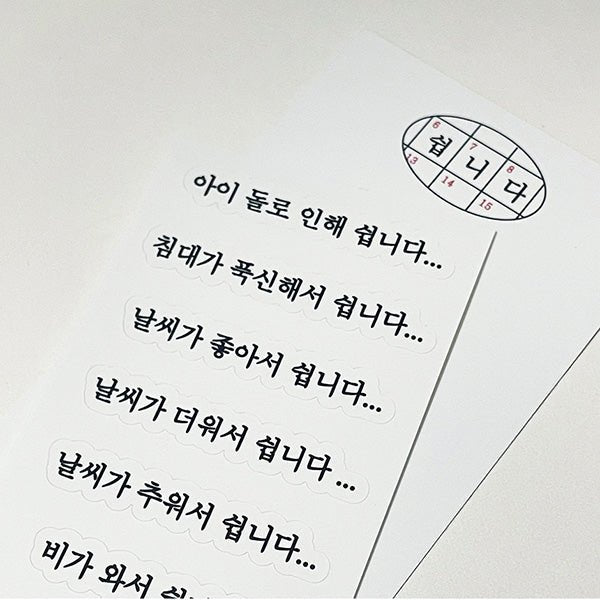 6 7 8
쉽니다
13 14 15
아이 돌로 인해 쉽니다...
침대가 폭신해서 쉽니다...
날씨가 좋아서 쉽니다...
날씨가 더워서 쉽니다...
날씨가 추워서 쉽니다...
비가 와서